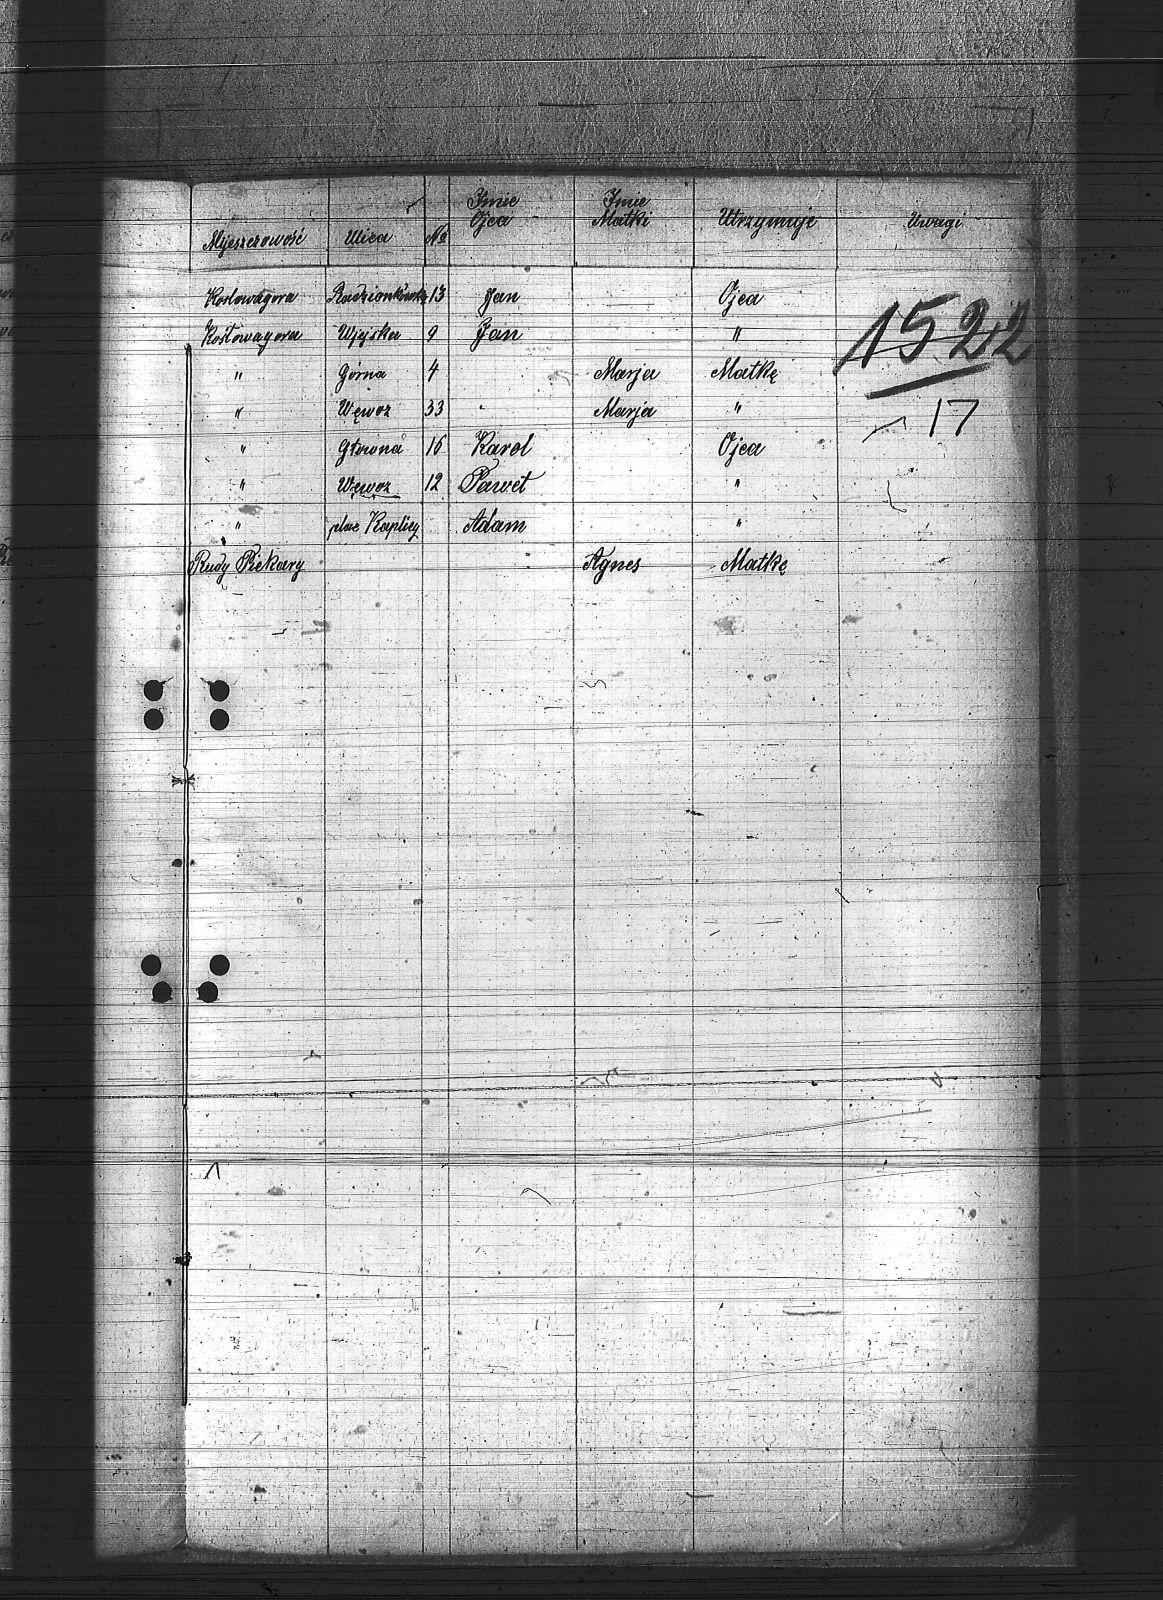 Mijescowość Ulica No Imie Ojca Imie Matki Utrzymuje Uwagi
Kosłowagora Radzionkówska 13 Jan — Ojca
Kosłowagora Wjejska 9 Jan "
" Górna 4 Marja Matkę
" Węwoz 33 Marja "
" Głowna 16 Karol Ojca
" Węwoz 12 Paweł "
" plac Kaplicy Adam "
Rudy Piekary Agnes Matkę
1522
17